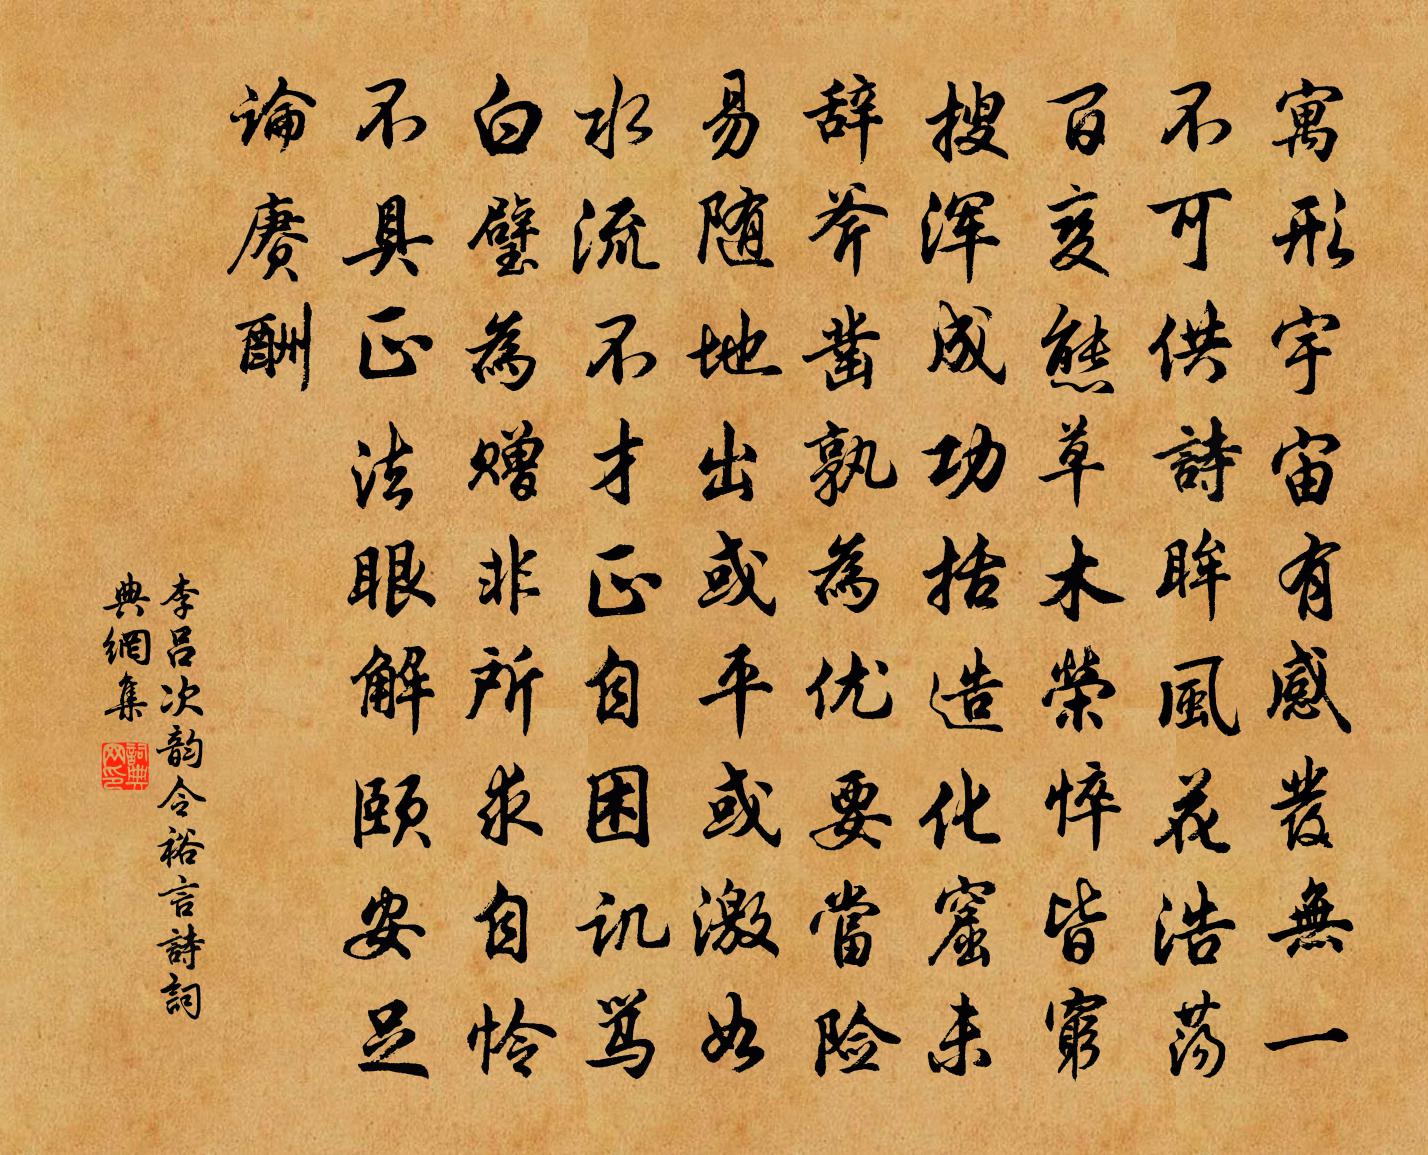 寓形宇宙有感發無一
不可供詩眸風花浩蕩
百变態草木榮悴皆窮
搜浑成功括造化窟未
辞斧凿孰為优要當险
易随地出或平或激如
水流不才正自困讥骂
白璧為赠非所求自怜
不具正法眼解颐安足
论赓酬
李吕次韵令裕言詩詞
典網集
詞典网印